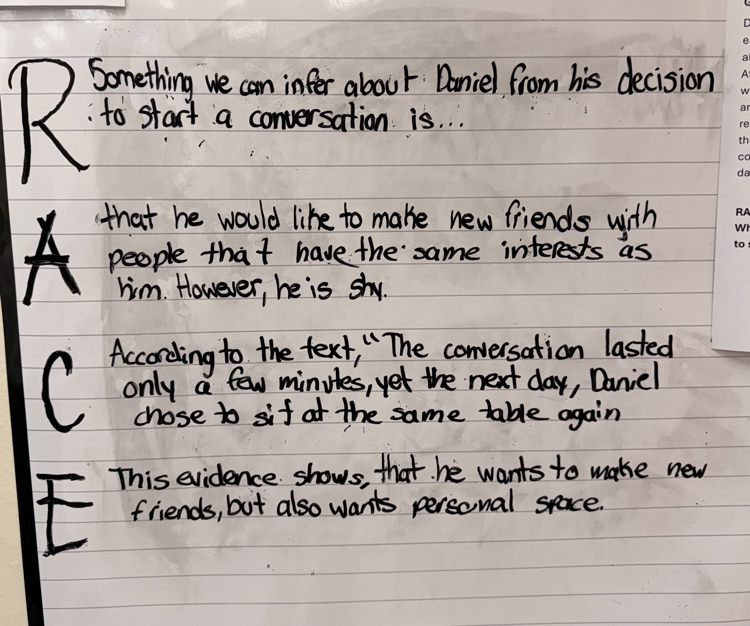 R Something we can infer about Daniel from his decision
to start a conversation is...
A that he would like to make new friends with
people that have the same interests as
him. However, he is shy.
C According to the text, "The conversation lasted
only a few minutes, yet the next day, Daniel
chose to sit at the same table again
E This evidence shows, that he wants to make new
friends, but also wants personal space.
RA
Wh
to s